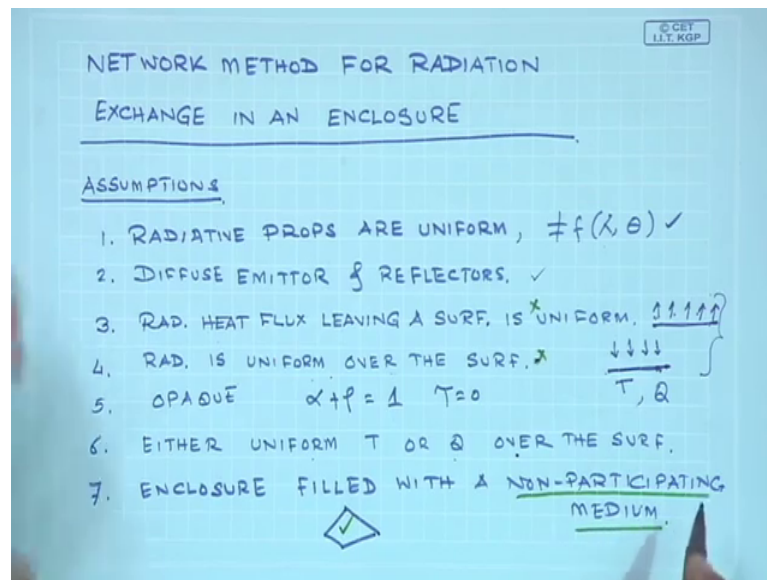 © CET
I.I.T. KGP
NETWORK METHOD FOR RADIATION
EXCHANGE IN AN ENCLOSURE
ASSUMPTIONS
1. RADIATIVE PROPS ARE UNIFORM, ≠ f(λ, θ) ✓
2. DIFFUSE EMITTOR & REFLECTORS. ✓
3. RAD. HEAT FLUX LEAVING A SURF. IS UNIFORM. ↑↑↑↑↑
4. RAD. IS UNIFORM OVER THE SURF. ↓↓↓↓
5. OPAQUE α+ρ=1 τ=0 T, Q
6. EITHER UNIFORM T OR Q OVER THE SURF.
7. ENCLOSURE FILLED WITH A NON-PARTICIPATING
MEDIUM.